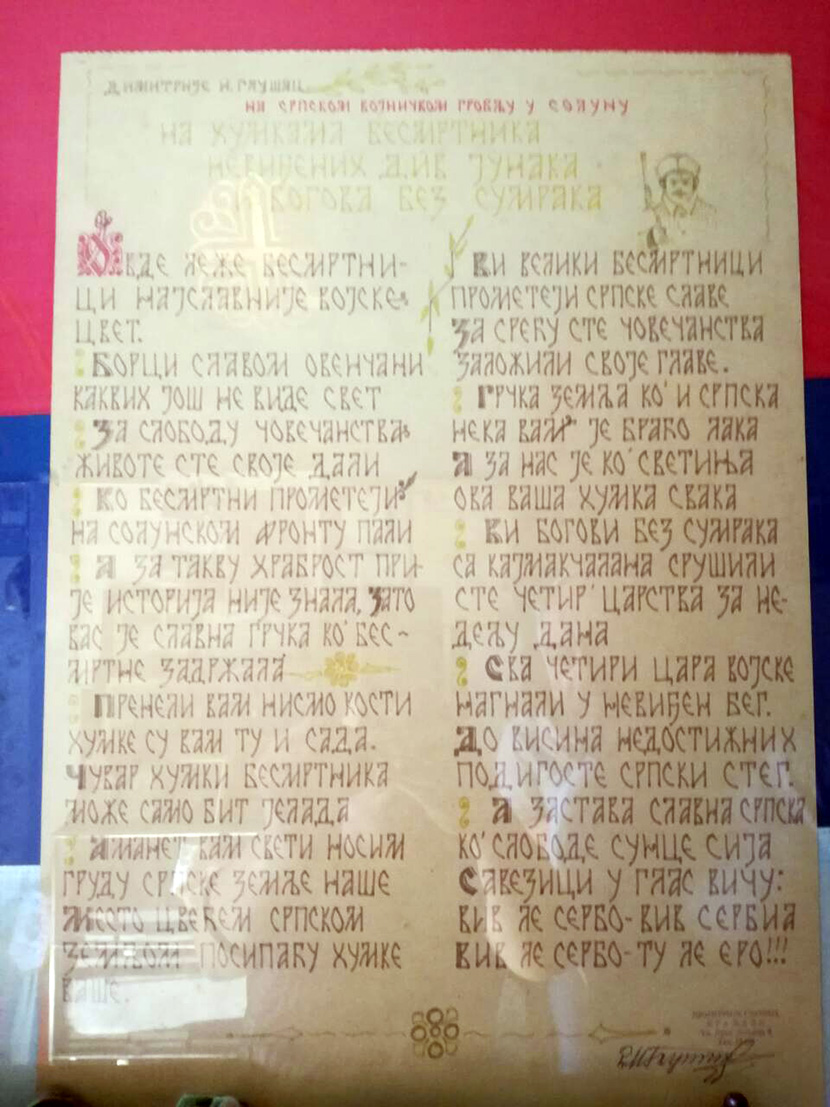 ДИМИТРИЈЕ М. ГЛУШАЦ
НА СРПСКОМ ВОЈНИЧКОМ ГРОБЉУ У СОЛУНУ
НА ХУМКАМА БЕСМРТНИКА
НЕВИЂЕНИХ ДИВ ЈУНАКА
И БОГОВА БЕЗ СУМРАКА
ОВДЕ ЛЕЖЕ БЕСМРТНИ-
ЦИ НАЈСЛАВНИЈЕ ВОЈСКЕ
ЦВЕТ.
БОРЦИ СЛАВОМ ОВЕНЧАНИ
КАКВИХ ЈОШ НЕ ВИДЕ СВЕТ
ЗА СЛОБОДУ ЧОВЕЧАНСТВА
ЖИВОТЕ СТЕ СВОЈЕ ДАЛИ
КО БЕСМРТНИ ПРОМЕТЕЈИ
НА СОЛУНСКОМ ФРОНТУ ПАЛИ
А ЗА ТАКВУ ХРАБРОСТ ПРИ-
ЈЕ ИСТОРИЈА НИЈЕ ЗНАЛА, ЗАТО
ВАС ЈЕ СЛАВНА ГРЧКА КО' БЕС-
МРТНЕ ЗАДРЖАЛА
ПРЕНЕЛИ ВАМ НИСМО КОСТИ
ХУМКЕ СУ ВАМ ТУ И САДА.
ЧУВАР ХУМКИ БЕСМРТНИКА
МОЖЕ САМО БИТ ЈЕЛАДА
АМАНЕТ ВАМ СВЕТИ НОСИМ
ГРУДУ СРПСКЕ ЗЕМЉЕ НАШЕ
МЕСТО ЦВЕЋЕМ СРПСКОМ
ЗЕМЉОМ ПОСИПАЋУ ХУМКЕ
ВАШЕ.
ВИ ВЕЛИКИ БЕСМРТНИЦИ
ПРОМЕТЕЈИ СРПСКЕ СЛАВЕ
ЗА СРЕЋУ СТЕ ЧОВЕЧАНСТВА
ЗАЛОЖИЛИ СВОЈЕ ГЛАВЕ.
ГРЧКА ЗЕМЉА КО' И СРПСКА
НЕКА ВАМ ЈЕ БРАЋО ЛАКА
А ЗА НАС ЈЕ КО' СВЕТИЊА
ОВА ВАША ХУМКА СВАКА
ВИ БОГОВИ БЕЗ СУМРАКА
СА КАЈМАКЧАЛАНА СРУШИЛИ
СТЕ ЧЕТИР' ЦАРСТВА ЗА НЕ-
ДЕЉУ ДАНА
СВА ЧЕТИРИ ЦАРА ВОЈСКЕ
НАГНАЛИ У НЕВИЂЕН БЕГ.
ДО ВИСИНА НЕДОСТИЖНИХ
ПОДИГОСТЕ СРПСКИ СТЕГ.
А ЗАСТАВА СЛАВНА СРПСКА
КО' СЛОБОДЕ СУНЦЕ СИЈА
САВЕЗИЦИ У ГЛАС ВИЧУ:
ВИВ ЛЕ СЕРБО-ВИВ СЕРБИА
ВИВ ЛЕ СЕРБО-ТУ ЛЕ ЕРО!!!